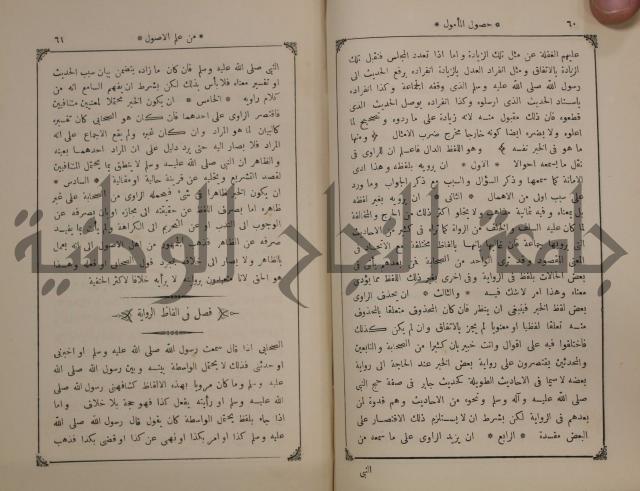 ٦٠ * حصول المأمول *
عليهم الغفلة عن مثل تلك الزيادة واما اذا تعدد المجلس فتقبل تلك
الزيادة بالاتفاق ومثل انفراد العدل بالزيادة انفراده برفع الحديث الى
رسول الله صلى الله عليه وسلم الذى وقفه الجماعة وكذا انفراده
باسناد الحديث الذى ارسلوه وكذا انفراده بوصل الحديث الذى
قطعوه فان ذلك مقبول منه لانه زيادة على ما رووه وتصحيح لما
اعلوه ولا يضره ايضا كونه خارجا مخرج ضرب الامثال * ومنها
ما هو فى الخبر نفسه * وهو اللفظ الدال فاعلم ان للراوى فى
نقل ما يسمعه احوالا * الاول * ان يرويه بلفظه وهذا ادى
الامانة كما سمعها وذكر السؤال والسبب مع ذكر الجواب وما ورد
على سبب اولى من الاهمال * الثانى * ان يرويه بغير لفظه
بل بمعناه وفيه ثمانية مذاهب ولا يخلو اكثر ذلك من الحرج والمخالفة
لما كان عليه السلف والخلف من الرواة كما تراه فى كثير من الاحاديث
التى يرويها جماعة فان غالبها بالفاظ مختلفة مع الاتحاد فى
المعنى المقصود وقد ترى الواحد من الصحابة فمن بعدهم يأتى فى
بعض الحالات بلفظ فى الرواية وفى اخرى بغير ذلك اللفظ مما يؤدى
معناه وهذا امر لا شك فيه * والثالث * ان يحذف الراوى
بعض لفظ الخبر فينبغى ان ينظر فان كان المحذوف متعلقا بالمحذوف
منه تعلقا لفظيا او معنويا لم يجز بالاتفاق وان لم يكن كذلك
فاختلفوا فيه على اقوال وانت خبير بان كثيرا من الصحابة والتابعين
والمحدثين يقتصرون على رواية بعض الخبر عند الحاجة الى رواية
بعضه لا سيما فى الاحاديث الطويلة كحديث جابر فى صفة حج النبى
صلى الله عليه وآله وسلم ونحوه من الاحاديث وهم قدوة لمن
بعدهم فى الرواية لكن بشرط ان لا يستلزم ذلك الاقتصار على
البعض مفسدة * الرابع * ان يزيد الراوى على ما سمعه من
النبى
* من علم الاصول * ٦١
النبى صلى الله عليه وسلم فان كان ما زاده يتضمن بيان سبب الحديث
او تفسير معناه فلا بأس بذلك لكن بشرط ان يفهم السامع انه من
كلام راويه * الخامس * ان يكون الخبر محتملا لمعنيين متنافيين
فاقتصر الراوى على احدهما فان كان هو الصحابى كان تفسيره
كالبيان لما هو المراد وان كان غيره ولم يقع الاجماع على انه
المراد فلا يصار اليه حتى يرد دليل على ان المراد احدهما بعينه
والظاهر ان النبى صلى الله عليه وسلم لا ينطق بما يحتمل المتنافيين
لقصد التشريع ويخليه عن قرينة حالية او مقالية * السادس *
ان يكون الخبر ظاهرا فى شئ فيحمله الراوى من الصحابة على غير
ظاهره اما بصرف اللفظ عن حقيقته الى مجازه او بان يصرفه عن
الوجوب الى الندب او عن التحريم الى الكراهة ولم يأت بما يفيد
صرفه عن الظاهر فذهب الجمهور من اهل الاصول الى انه يعمل
بالظاهر ولا يصار الى خلافه لمجرد قول الصحابى او فعله وهذا
هو الحق لانا متعبدون بروايته لا برأيه خلافا لاكثر الحنفية
فصل فى الفاظ الرواية
الصحابى اذا قال سمعت رسول الله صلى الله عليه وسلم او اخبرنى
او حدثنى فذلك لا يحتمل الواسطة بينه وبين رسول الله صلى الله
عليه وسلم وما كان مرويا بهذه الالفاظ كشافهنى رسول الله صلى
الله عليه وسلم او رأيته يفعل كذا فهو حجة بلا خلاف واما
اذا جاء بلفظ يحتمل الواسطة كان يقول قال رسول الله صلى الله
عليه وسلم كذا او امر بكذا او نهى عن كذا او قضى بكذا فذهب